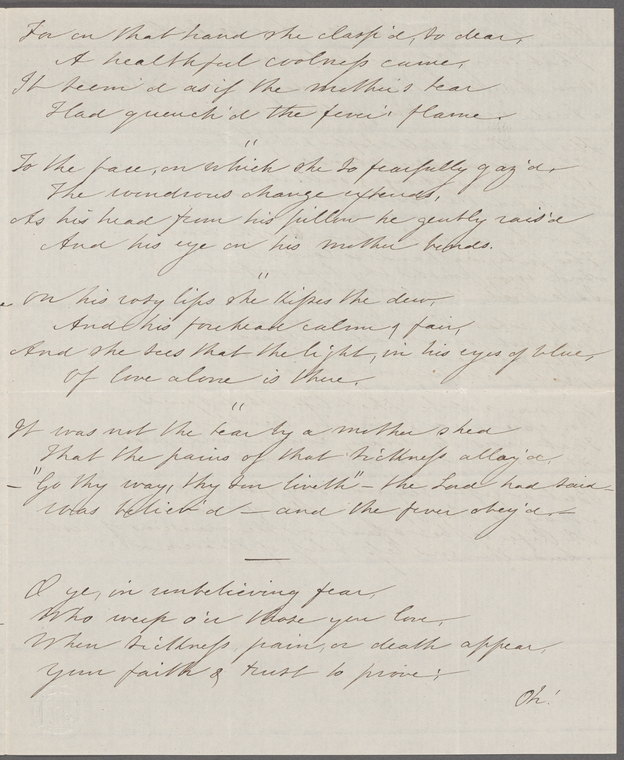 For on that hand she clasp'd, so dear,
A healthful coolness came,
It seem'd as if the mother's tear
Had quench'd the fever's flame.
"
To the face, on which she so fearfully gaz'd,
The wondrous change extends,
As his head from his pillow he gently rais'd
And his eye on his mother bends.
"
On his rosy lips she kisses the dew,
And his forehead calm & fair,
And she sees that the light, in his eyes of blue,
Of love alone is there.
"
It was not the tear by a mother shed
That the pains of that sickness allay'd,
– "Go thy way, thy son liveth" – the Lord had said –
was believ'd – and the fever obey'd. –
O ye, in unbelieving fear,
Who weep o'er those you love,
When sickness, pain, or death appear,
Your faith & trust to prove;
Oh!